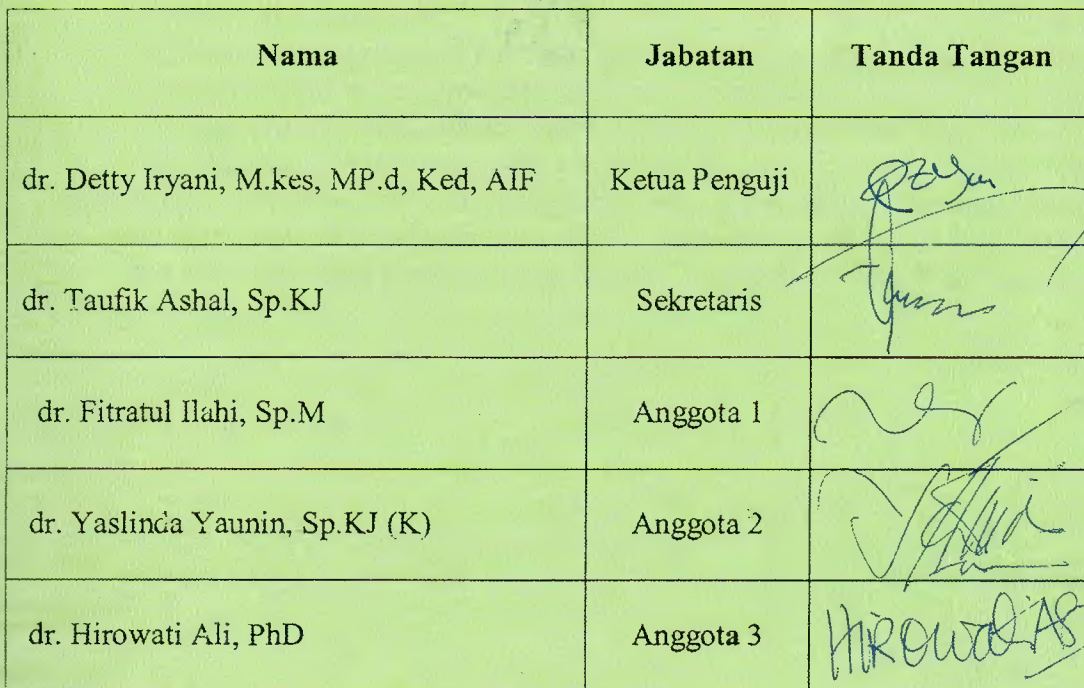 Nama Jabatan Tanda Tangan
dr. Detty Iryani, M.kes, MP.d, Ked, AIF Ketua Penguji
dr. Taufik Ashal, Sp.KJ Sekretaris
dr. Fitratul Ilahi, Sp.M Anggota 1
dr. Yaslinda Yaunin, Sp.KJ (K) Anggota 2
dr. Hirowati Ali, PhD Anggota 3